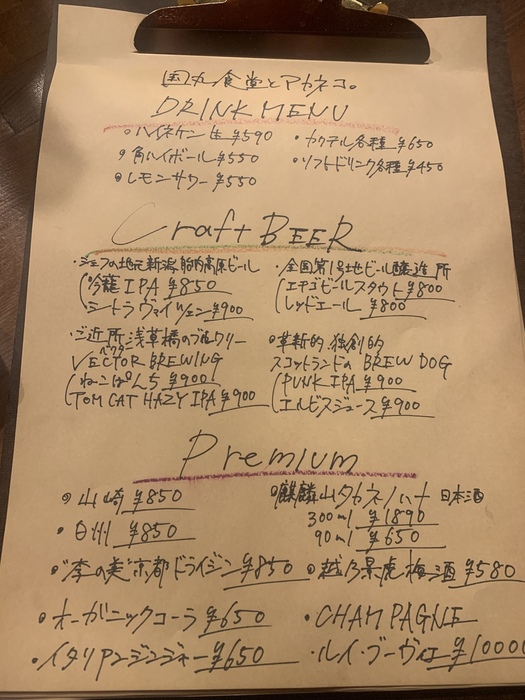 国力食堂とアカネコ。
DRINK MENU
・ハイネケン 生 ¥590 ・カクテル各種 ¥650
・角ハイボール ¥550 ・ソフトドリンク各種 ¥450
・レモンサワー ¥550
Craft BEER
・シェフの地元新潟、胎内高原ビール
吟籠 IPA ¥850
シートラ ヴァイツェン ¥900
・全国第1号地ビール醸造所
エチゴビールスタウト ¥800
レッドエール ¥800
・ご近所 浅草橋のブルワリー
ベクター
VECTOR BREWING
ねこぱんち ¥900
TOM CAT HAZY IPA ¥900
・革新的、独創的
スコットランドの BREW DOG
PUNK IPA ¥900
エルビスジュース ¥900
Premium
・山崎 ¥850
・白州 ¥850
・"季の美"京都ドライジン ¥850
・オーガニックコーラ ¥650
・イタリアンジンジャー ¥650
・麒麟山タカネノハナ 日本酒
300ml ¥1890
90ml ¥650
・越乃景虎 梅酒 ¥580
・CHAMPAGNE
・ルイ・ブーヴィエ ¥10000